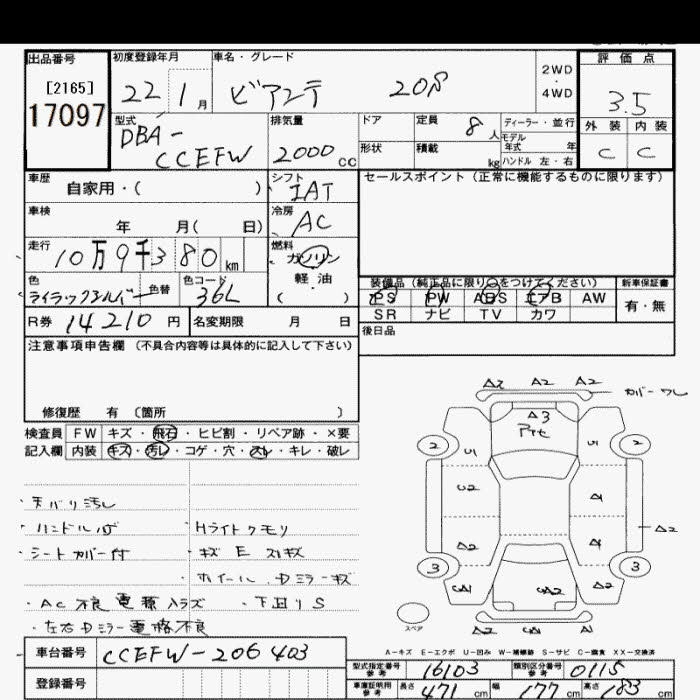 出品番号 初度登録年月 車名・グレード 2WD・4WD 評価点
[2165]
17097 22 1月 ビアンテ 20S 3.5
型式 排気量 ドア 定員 8人 ディーラー・並行 外装 内装
DBA- 形状 積載 kg モデル年式 年 C C
CCEFW 2000cc ハンドル 左・右
車歴 シフト セールスポイント (正常に機能するものに限ります)
自家用・( ) IAT
車検 冷房
年 月( 日) AC
走行 燃料
10万9千380km ガソリン
色 色替 色コード 軽・油 装備品 (純正品に限り○をつけてください) 新車保証書
ライラックシルバー 36L ( ) PS PW ABS エアB AW 有・無
R券 14210円 名変期限 月 日 SR ナビ TV カワ
注意事項申告欄 (不具合内容等は具体的に記入して下さい) 後日品
修復歴 有 (箇所 )
検査員 FW キズ・飛石・ヒビ割・リペア跡・×要
記入欄 内装 キズ・汚レ・コゲ・穴・スレ・キレ・破レ
・天バリ汚レ
・シートカバー付 ・Hライトクモリ
・キズ E スリキズ
・ホイール、Dミラーキズ
・AC不良 電源入ラズ ・下回りS
・左右Dミラー電格不良
A2 A2 A2 カバーワレ
A3
2 U1 U1 2
U2 A1
A2 A1 A2
3 A2 3
スペア A2 A1
A-キズ E-エクボ U-凹み W-補修跡 S-サビ C-腐食 XX-交換済
車台番号 CCEFW-206403
登録番号
型式指定番号 参考 16103 類別区分番号 参考 0115
車庫証明用 参考 長さ 471cm 幅 177cm 高さ 183cm